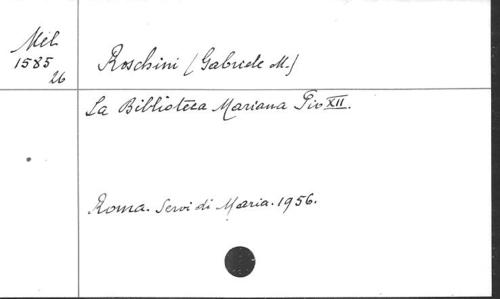 Mél
1585
26
Roschini (Gabriele M.)
La Biblioteca Mariana Pio XII.
Roma. Servi di Maria. 1956.